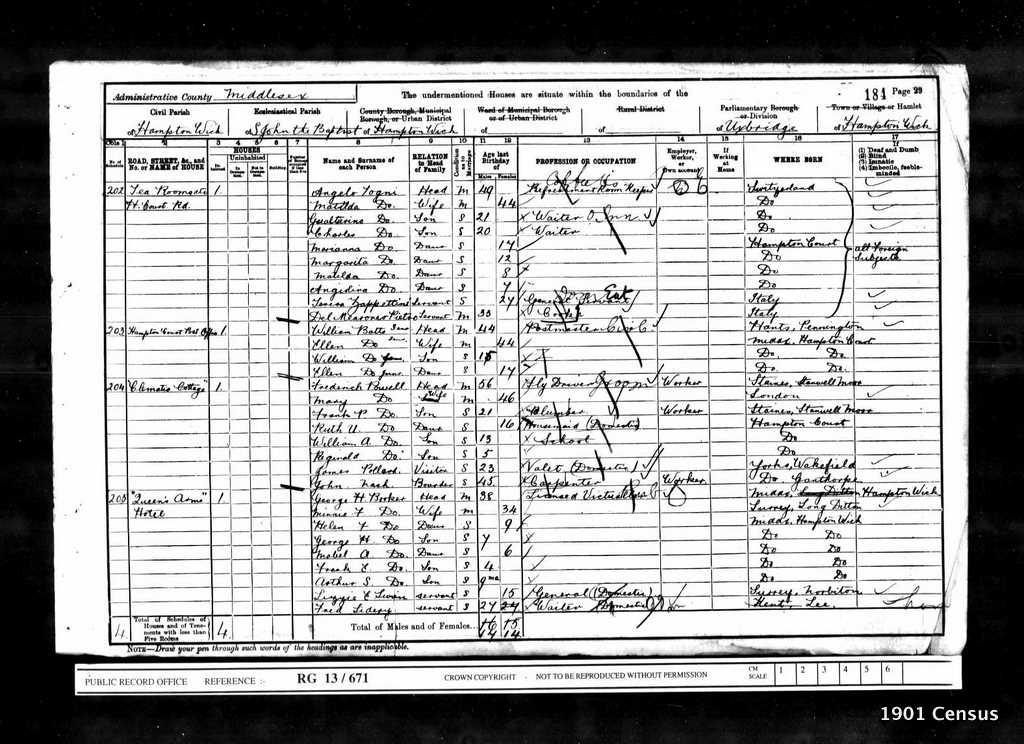 Administrative County Middlesex
The undermentioned Houses are situate within the boundaries of the
184 Page 29
Civil Parish
Ecclesiastical Parish
County Borough, Municipal Borough, or Urban District
Ward of Municipal Borough or of Urban District
Rural District
Parliamentary Borough or Division
Town or Village or Hamlet
of Hampton Wick
of St John the Baptist
of Hampton Wick
of
of
of Uxbridge
of Hampton Wick
Cols 1 2 3 4 5 6 7 8 9 10 11 12 13 14 15 16 17
No. of Schedule
ROAD, STREET, &c., and No. or NAME of HOUSE
HOUSES
Uninhabited
Name and Surname of each Person
RELATION to Head of Family
Condition as to Marriage
Age last Birthday of
Males Females
PROFESSION OR OCCUPATION
Employer, Worker, or Own account
If Working at Home
WHERE BORN
If (1) Deaf and Dumb (2) Blind (3) Lunatic (4) Imbecile, feeble-minded
202 Tea Rooms 1 Angelo Do Head M 49 Refreshment Room Keeper Switzerland
H. Court Rd. Matilda Do. Wife M 44 Do
Do. Son S 21 Waiter Inn Do
Charles Do. Son S 20 Waiter Do
Marianna Do. Daur S 17 Hampton Court all Foreign Subjects
Margarita Do. Daur S 12 Do
Matilda Do. Daur S 8 Do
Angelina Do. Daur S 7 Do
Servant S 27 Italy
Pietro Servant M 33 Italy
203 Hampton Court Post Office 1 William Botts Senr Head M 44 Postmaster Hants, Pennington
Ellen Do Senr Wife M 44 Middx. Hampton Court
William Do Junr. Son S 15 Do. Do.
Ellen Do Junr. Daur S 17 Do. Do.
204 "Clematis Cottage" 1 Frederick Powell Head M 56 Fly Driver Groom Worker Staines, Stanwell Moor
Mary Do Wife M 46 London
Frank P. Do. Son S 21 Plumber Worker Staines, Stanwell Moor
Ruth U. Do Daur S 16 Housemaid (Domestic) Hampton Court
William A. Do Son S 13 School Do
Reginald Do Son S 5 Do
James Pollard Visitor S 23 Valet (Domestic) Yorks, Wakefield
John Nash Boarder S 45 Carpenter Worker Do.
205 "Queen's Arms" 1 George H. Head M 38 Licensed Victualler Middx, Long Ditton Hampton Wick
Hotel Minnie F Do. Wife M 34 Surrey, Long Ditton
Helen F Do Daur S 9 Middx. Hampton Wick
George H. Do Son S 7 Do Do
Mabel A. Do. Daur S 6 Do Do
Frank E. Do. Son S 4 Do Do
Arthur S. Do. Son S 9 mo Do Do
Lizzie E servant S 15 General (Domestic) Surrey, Norbiton
servant S 27 27 Waiter (Domestic) Kent, Lee.
4 Total of Schedules of Houses and of Tenements with less than Five Rooms 4
Total of Males and of Females... 16 15
14 14
NOTE—Draw your pen through such words of the headings as are inapplicable.
PUBLIC RECORD OFFICE REFERENCE :- RG 13/671 CROWN COPYRIGHT - NOT TO BE REPRODUCED WITHOUT PERMISSION CM SCALE 1 2 3 4 5 6
1901 Census